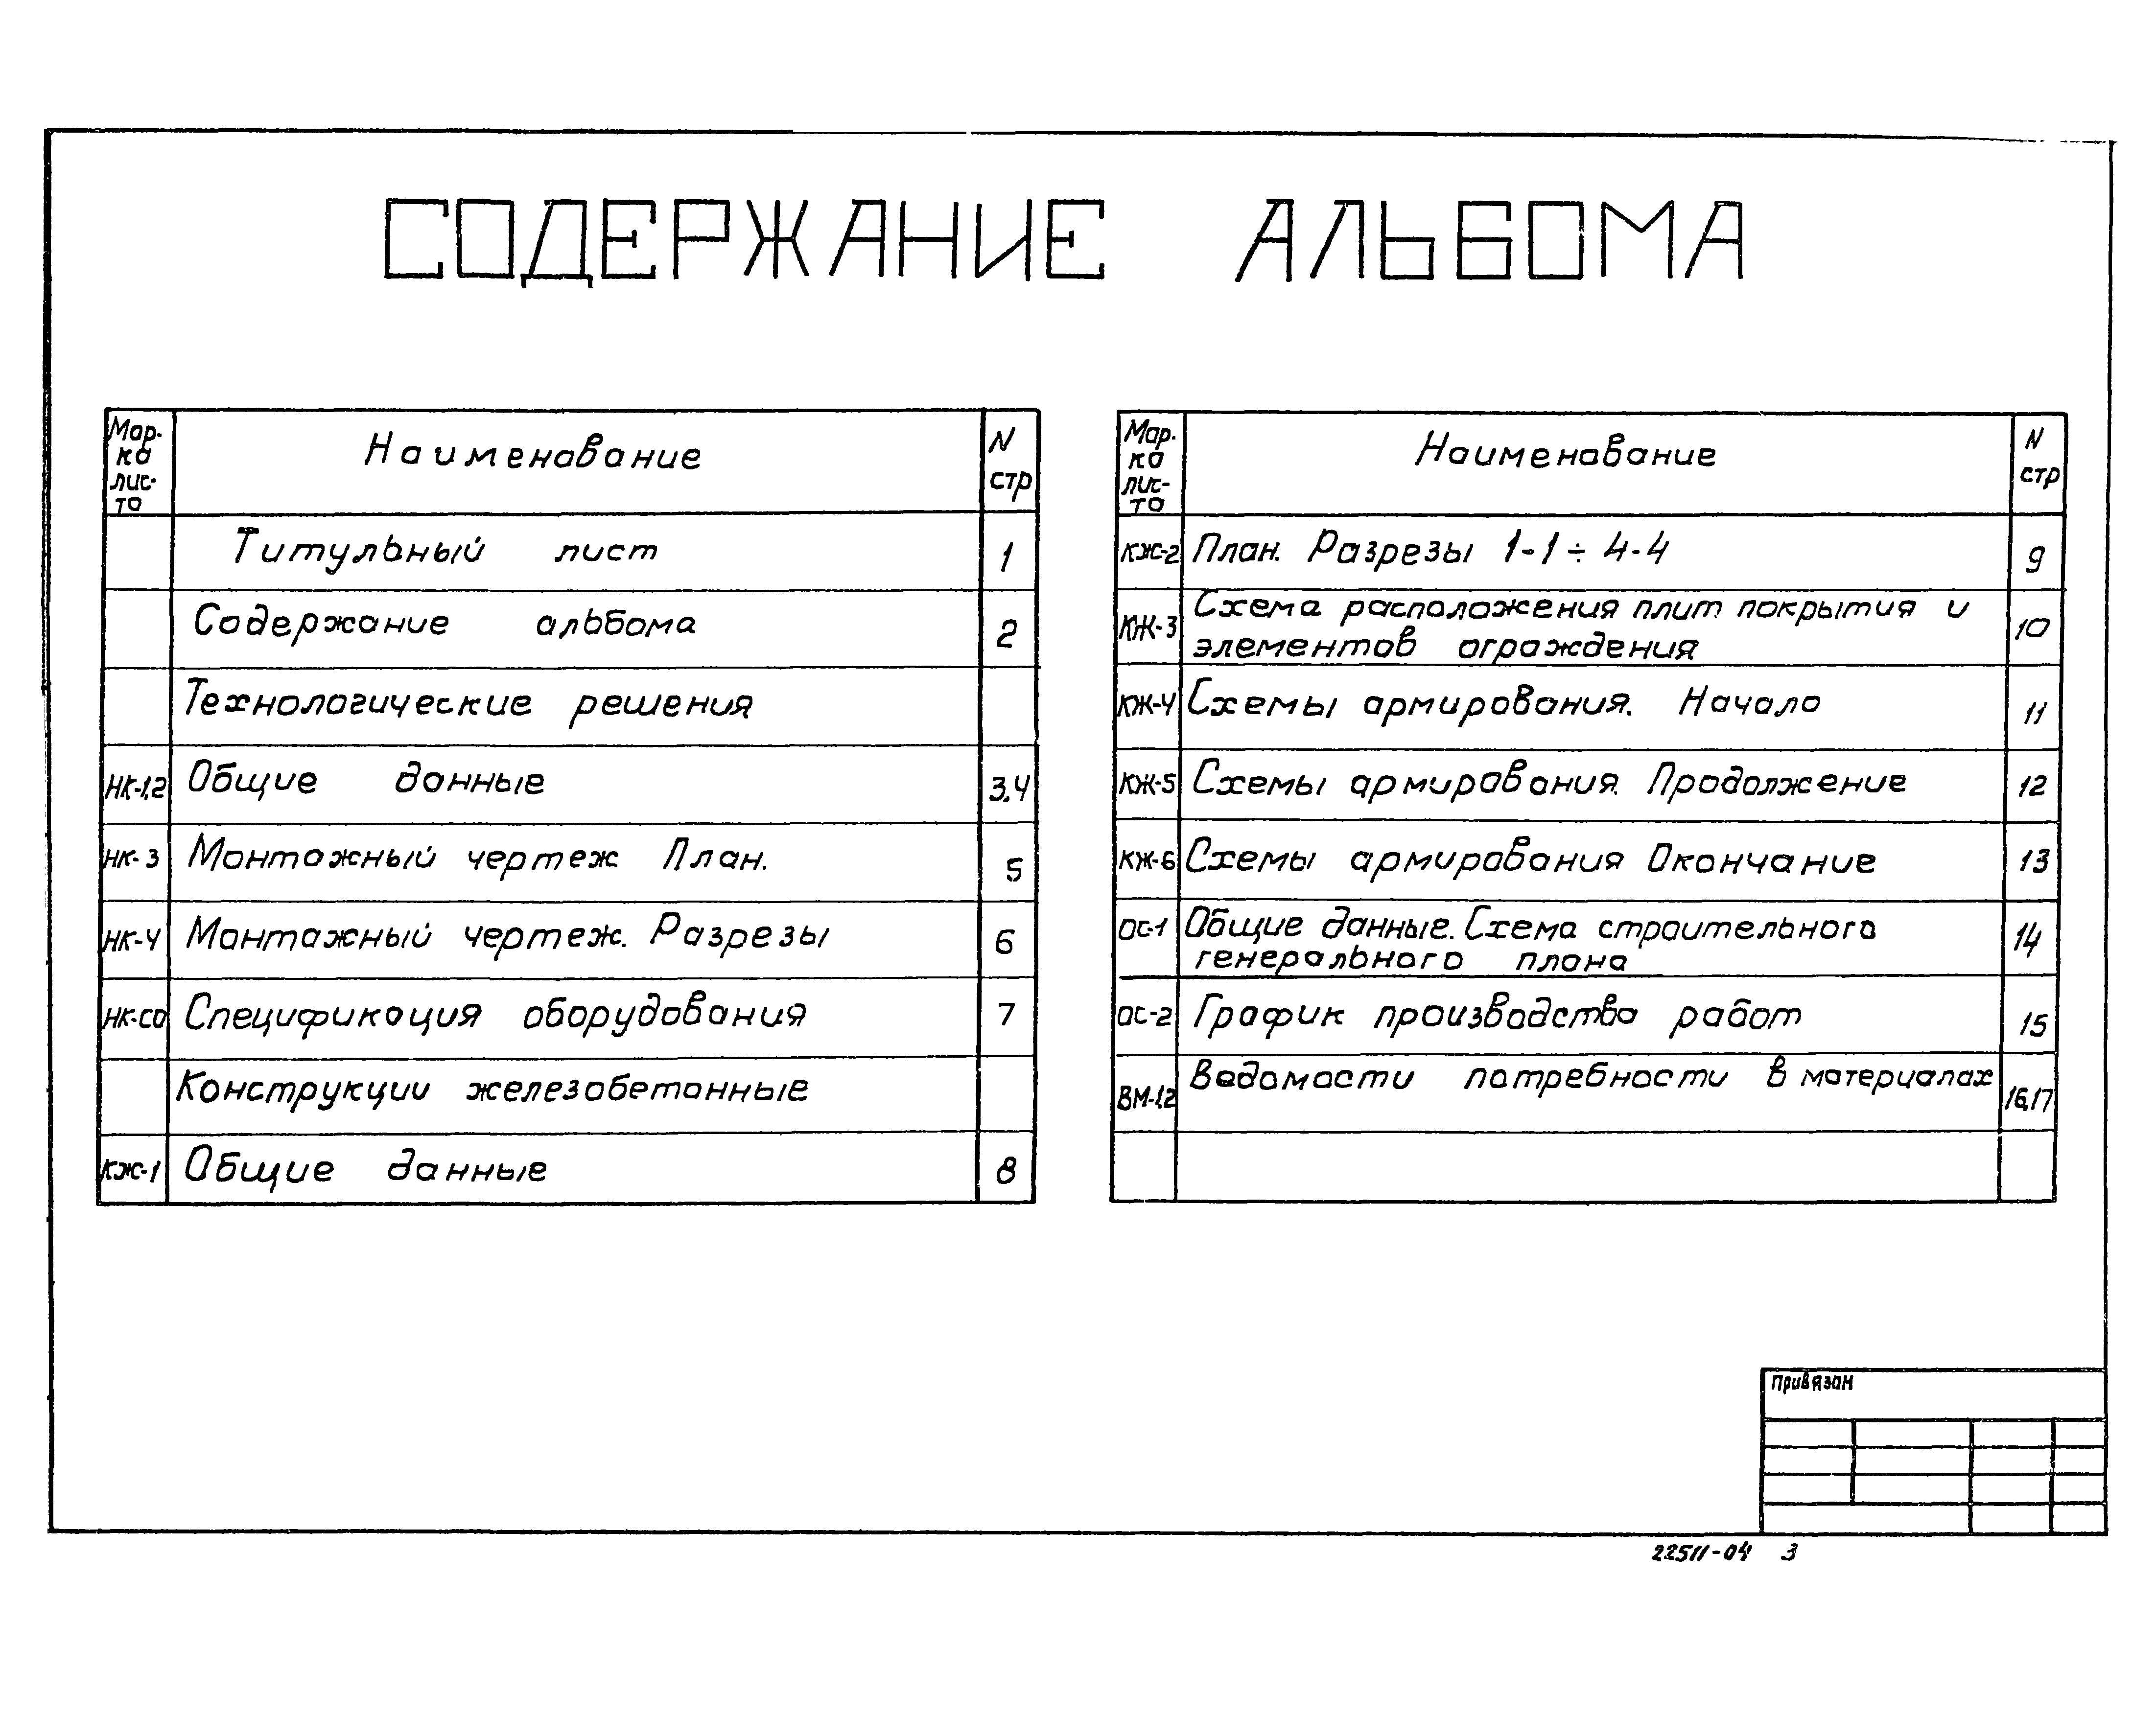 СОДЕРЖАНИЕ АЛЬБОМА
Мар-
ка
лис-
та
Наименование
N
стр
Титульный лист 1
Содержание альбома 2
Технологические решения
НК-1,2 Общие данные 3,4
НК-3 Монтажный чертеж План. 5
НК-4 Монтажный чертеж. Разрезы 6
НК-СО Спецификация оборудования 7
Конструкции железобетонные
КЖ-1 Общие данные 8
Мар-
ка
лис-
та
Наименование
N
стр
КЖ-2 План. Разрезы 1-1÷4-4 9
КЖ-3 Схема расположения плит покрытия и
элементов ограждения 10
КЖ-4 Схемы армирования. Начало 11
КЖ-5 Схемы армирования. Продолжение 12
КЖ-6 Схемы армирования Окончание 13
ОС-1 Общие данные. Схема строительного
генерального плана 14
ОС-2 График производства работ 15
ВМ-1,2 Ведомости потребности в материалах 16,17
Привязан
22511-04 3